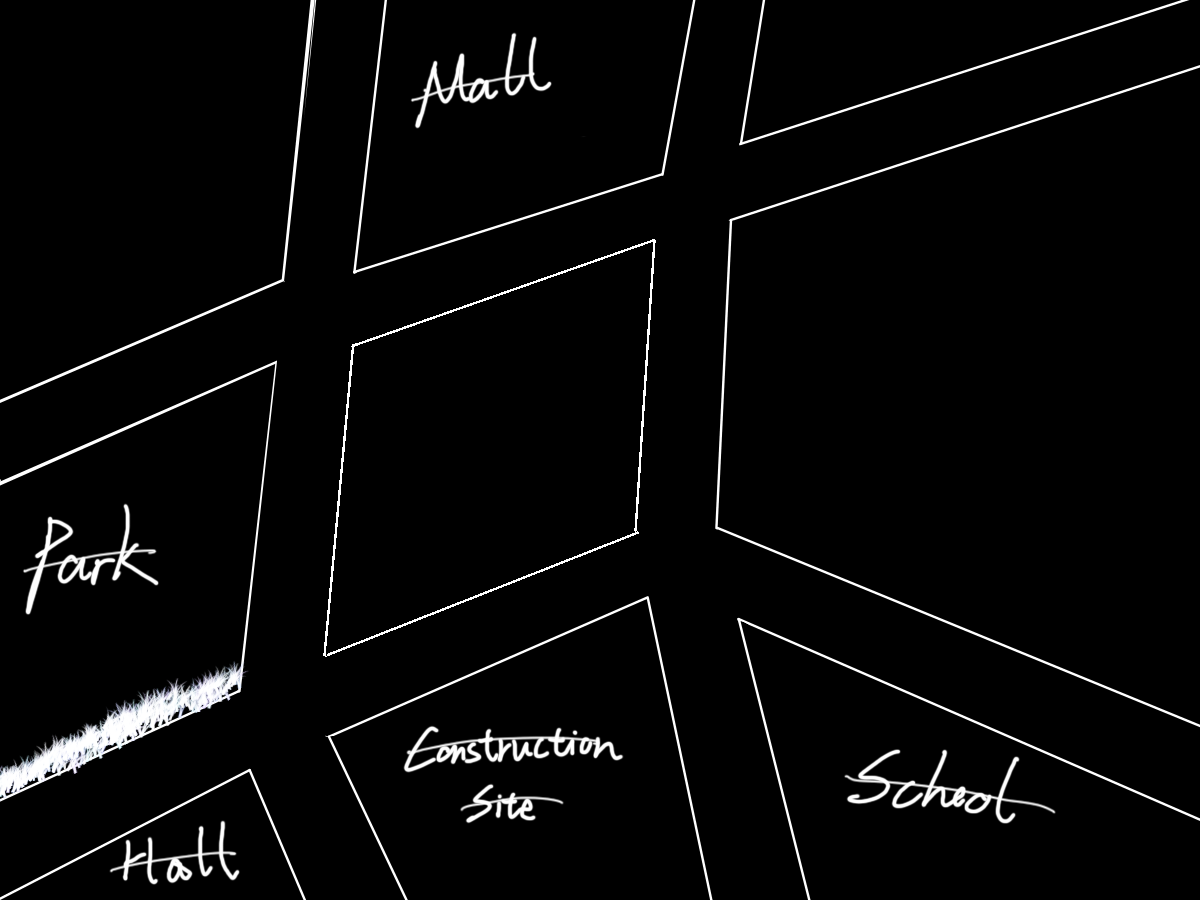 Mall
Park
Construction
Site
School
Hall